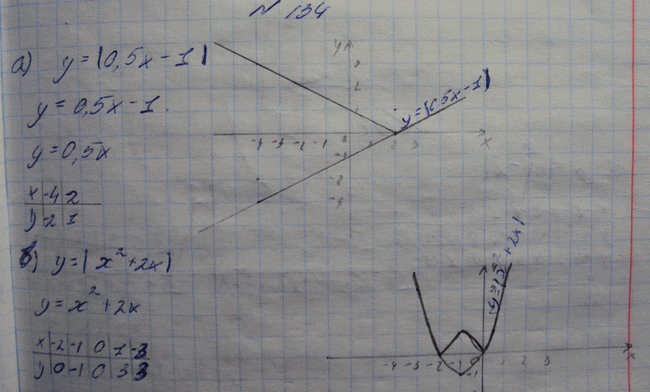 № 134
а) y = |0,5x - 1|
y = 0,5x - 1
y = 0,5x
x -4 2
y -2 1
y = |0,5x - 1|
y
x
б) y = |x² + 2x|
y = x² + 2x
x -2 -1 0 1 -3
y 0 -1 0 3 3
y = |x² + 2x|
-4 -3 -2 -1 0 1 2 3
x